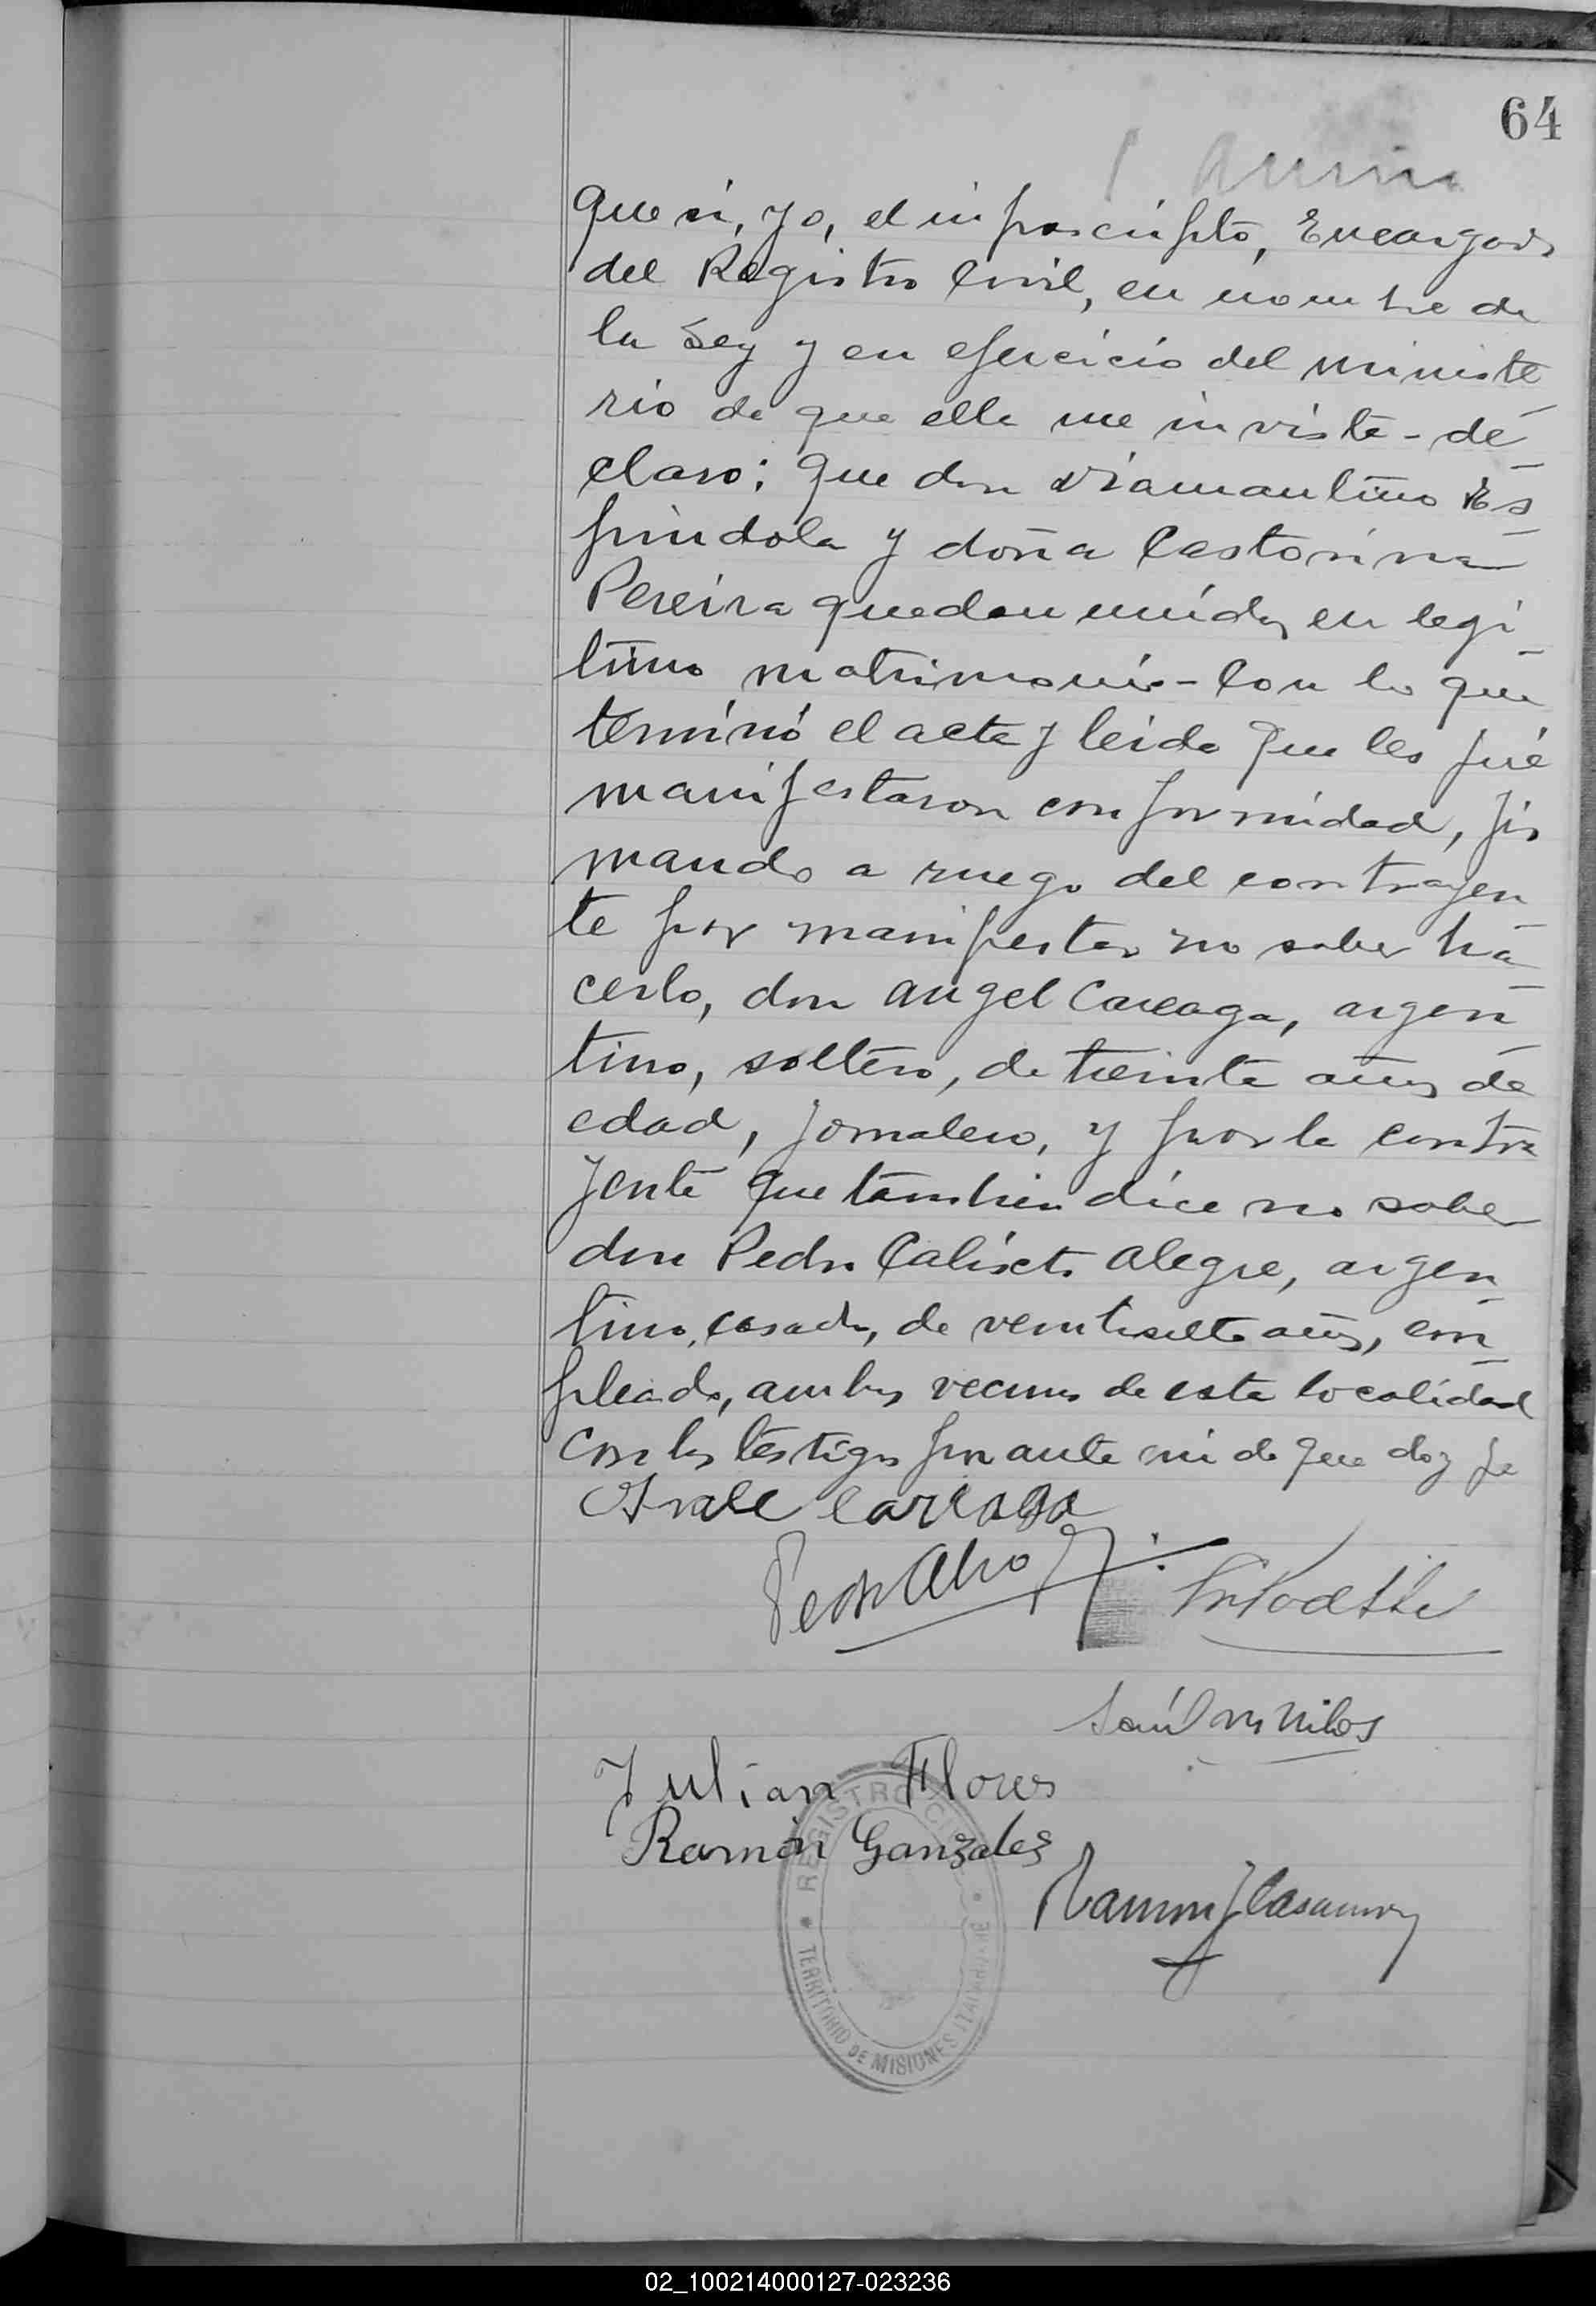 64
que si, yo, el infrascripto, Encargado
del Registro Civil, en nombre de
la Ley y en ejercicio del ministe
rio de que ella me inviste - de
claro: que don Diamantino Es
pindola y doña Castorina
Pereira quedan unidos en legi
timo matrimonio - Con lo que
terminó el acta y leida que les fué
manifestaron conformidad, fir
mando a ruego del contrayen
te por manifestar no saber ha
cerlo, don Angel Careaga, argen
tino, soltero, de treinta años de
edad, jornalero, y por la contra
yente que tambien dice no saber
don Pedro Calixto Alegre, argen
tino, casado, de veintisiete años, em
pleado, ambos vecinos de esta localidad
con los testigos por ante mi de que doy fe
Careaga
Pedro
Julian Flores
Ramón Gonzalez
Ramon J Casamom
REGISTRO CIVIL
TERRITORIO DE MISIONES ITACARUARE
02_100214000127-023236